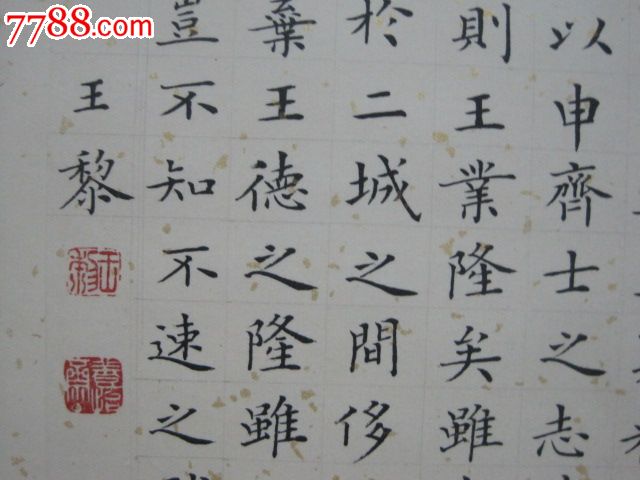 7788.com
以申齊士之志
則王業隆矣雖
於二城之間侈
葉王德之隆雖
豈不知不速之
王黎